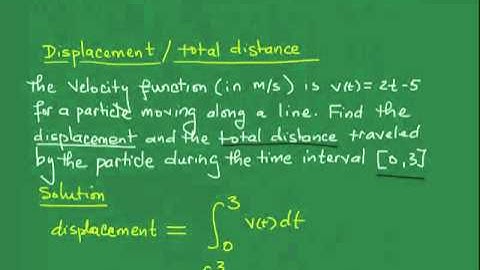 Displacement / total distance
The velocity function (in m/s) is v(t) = 2t - 5
for a particle moving along a line. Find the
displacement and the total distance traveled
by the particle during the time interval [0,3]
Solution
displacement = ∫₀³ v(t) dt